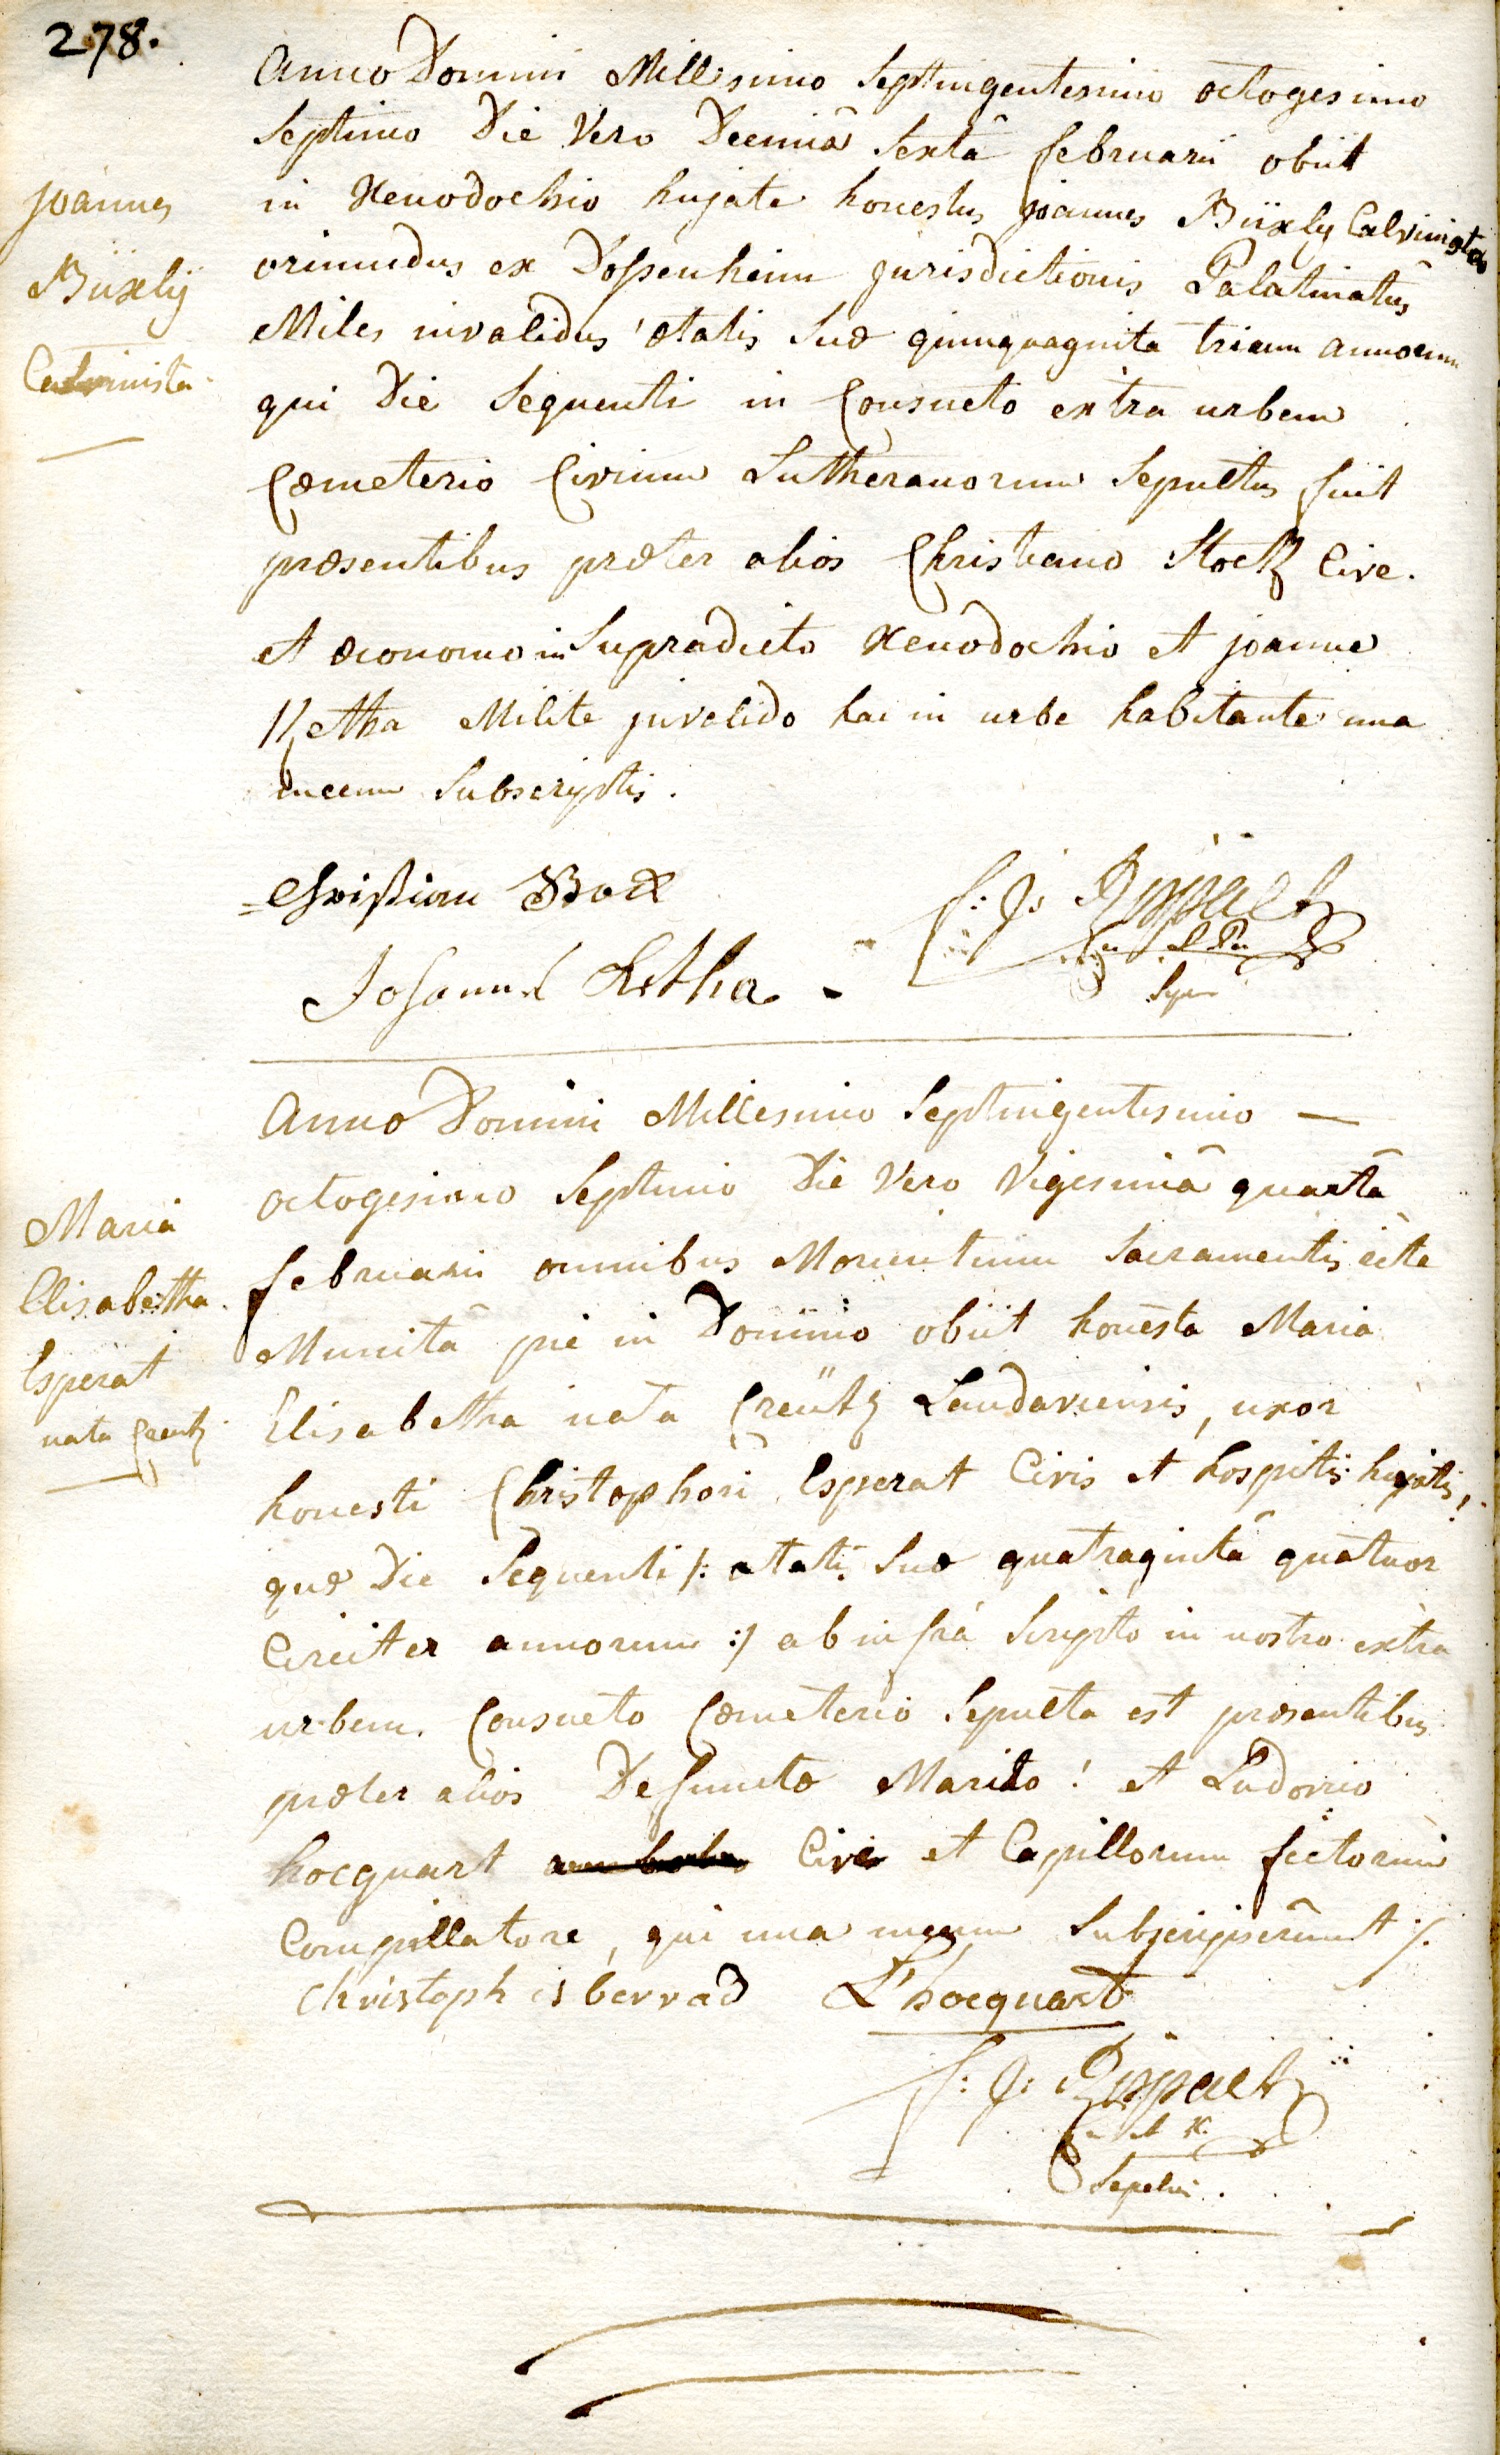 278.
Anno Domini Millesimo Septingentesimo octogesimo
Septimo Die Vero Decimâ Sextâ februarii obiit
in Xenodochio hujate honestus joannes Büxly Calvinista
oriundus ex Dossenheim jurisdictionis Palatinatus
Miles invalidus ætatis suæ quinquaginta trium annorum
qui Die Sequenti in Consueto extra urbem
Cœmeterio Civium Lutheranorum Sepultus fuit
præsentibus præter alios Christiano Stock Cive
et œconomo in Supradicto Xenodochio et joanne
Retha Milite invalido hac in urbe habitante una
mecum Subscriptis.
joannes
Büxlÿ
Calvinista
Christian Bock
Johannes Retha
f: J: Rippach
Anno Domini Millesimo Septingentesimo —
octogesimo Septimo Die Vero Vigesimâ quartâ
februarii omnibus Morientium Sacramentis rite
Munita pie in Domino obiit honesta Maria
Elisabetha nata Creütz Landaviensis, uxor
honesti Christophori Esperat Civis et hospitis hujatis,
quæ Die Sequenti /: ætatis suæ quatraginta quatuor
Circiter annorum :/ ab infrà Scripto in nostro extra
urbem Consueto Cœmeterio Sepulta est præsentibus
præter alios Defunctæ Marito! et Ludovico
hocquart Cive et Capillorum fictorum
Compillatore, qui una mecum Subscripserunt /.
Maria
Elisabetha
Esperat
nata Creutz
Christoph isberrad L'hocquart
f: J: Rippach
Sepelivi.